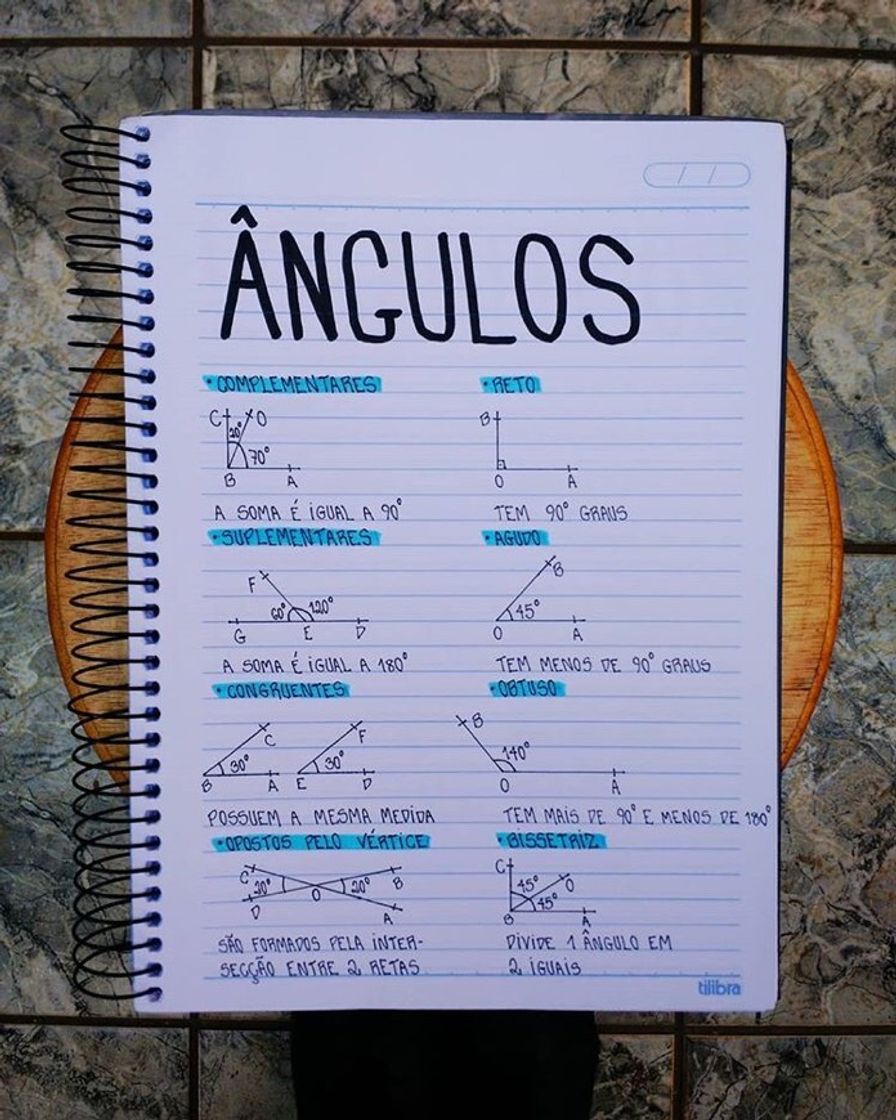 ÂNGULOS
• COMPLEMENTARES
C O
20°
70°
B A
A SOMA É IGUAL A 90°
• RETO
B
O A
TEM 90° GRAUS
• SUPLEMENTARES
F
60° 120°
G E D
A SOMA É IGUAL A 180°
• AGUDO
B
45°
O A
TEM MENOS DE 90° GRAUS
• CONGRUENTES
C F
30° 30°
B A E D
POSSUEM A MESMA MEDIDA
• OBTUSO
B
140°
O A
TEM MAIS DE 90° E MENOS DE 180°
• OPOSTOS PELO VÉRTICE
C 20° 20° B
D O A
SÃO FORMADOS PELA INTER-
SECÇÃO ENTRE 2 RETAS
• BISSETRIZ
C
45° O
45°
B A
DIVIDE 1 ÂNGULO EM
2 IGUAIS
tilibra